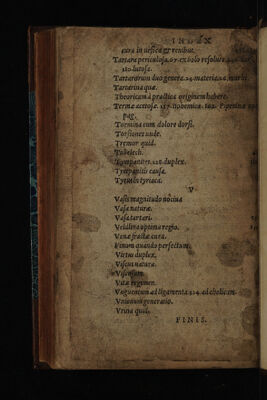 INDEX
cura in vesica & renibus.
Tartara periculosa.67. ex bolo resoluta
180. lutosa.
Tartarorum duo genera.24. materia.26. morbi
Tartarina quæ.
Theoricam à practica originem habere.
Termæ acetosæ 157. bohemicæ. 162. Piperinæ
pag.
Tormina cum dolore dorsi.
Torsiones unde.
Tremor quid.
Tympanites.128. duplex.
Tympanitis causa.
Tyriaca.
V
Vasis magnitudo nociua
Vasa naturæ.
Vasa tartari.
Veldlina optima regio.
Venæ fractæ cura.
Vinum quando perfectum.
Virtus duplex.
Viscus natura.
Vitæ regimen.
Vnguentum ad ligamenta.124. ad cholicam.
Vnionum generatio.
Vrina quid.
FINIS.